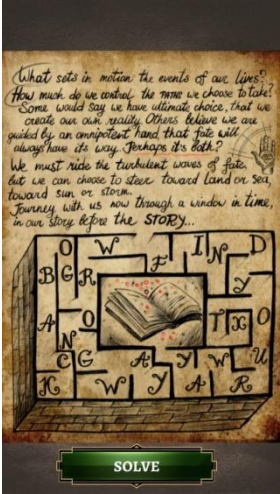 What sets in motion the events of our lives?
How much do we control the PATHS we choose to take?
Some would say we have ultimate choice, that we
create our own reality. Others believe we are
guided by an omnipotent hand, that fate will
always have its way. Perhaps it's both?
We must ride the turbulent waves of fate,
but we can choose to steer toward land or sea,
toward sun or storm.
Journey with us now through a window in time,
in our story before the STORY...
O W F I N D
B G R Y
A N O T X O
C G A Y W U
K W Y A R
SOLVE